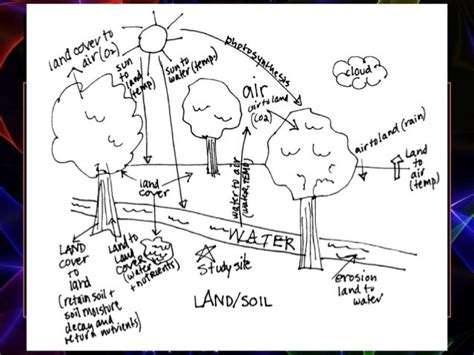 land cover to
air (O2)
sun
to
land
(temp)
sun to
water (temp)
photosynthesis
cloud
air
air to land
(CO2)
air to land (rain)
Land
to
air
(temp)
land
cover
water to air
(water, TEMP)
WATER
LAND
cover
to
land
(retain soil +
soil moisture
decay and
return nutrients)
Land to
Land
cover
(water
+ nutrients)
Study site
LAND/SOIL
erosion
land to
water